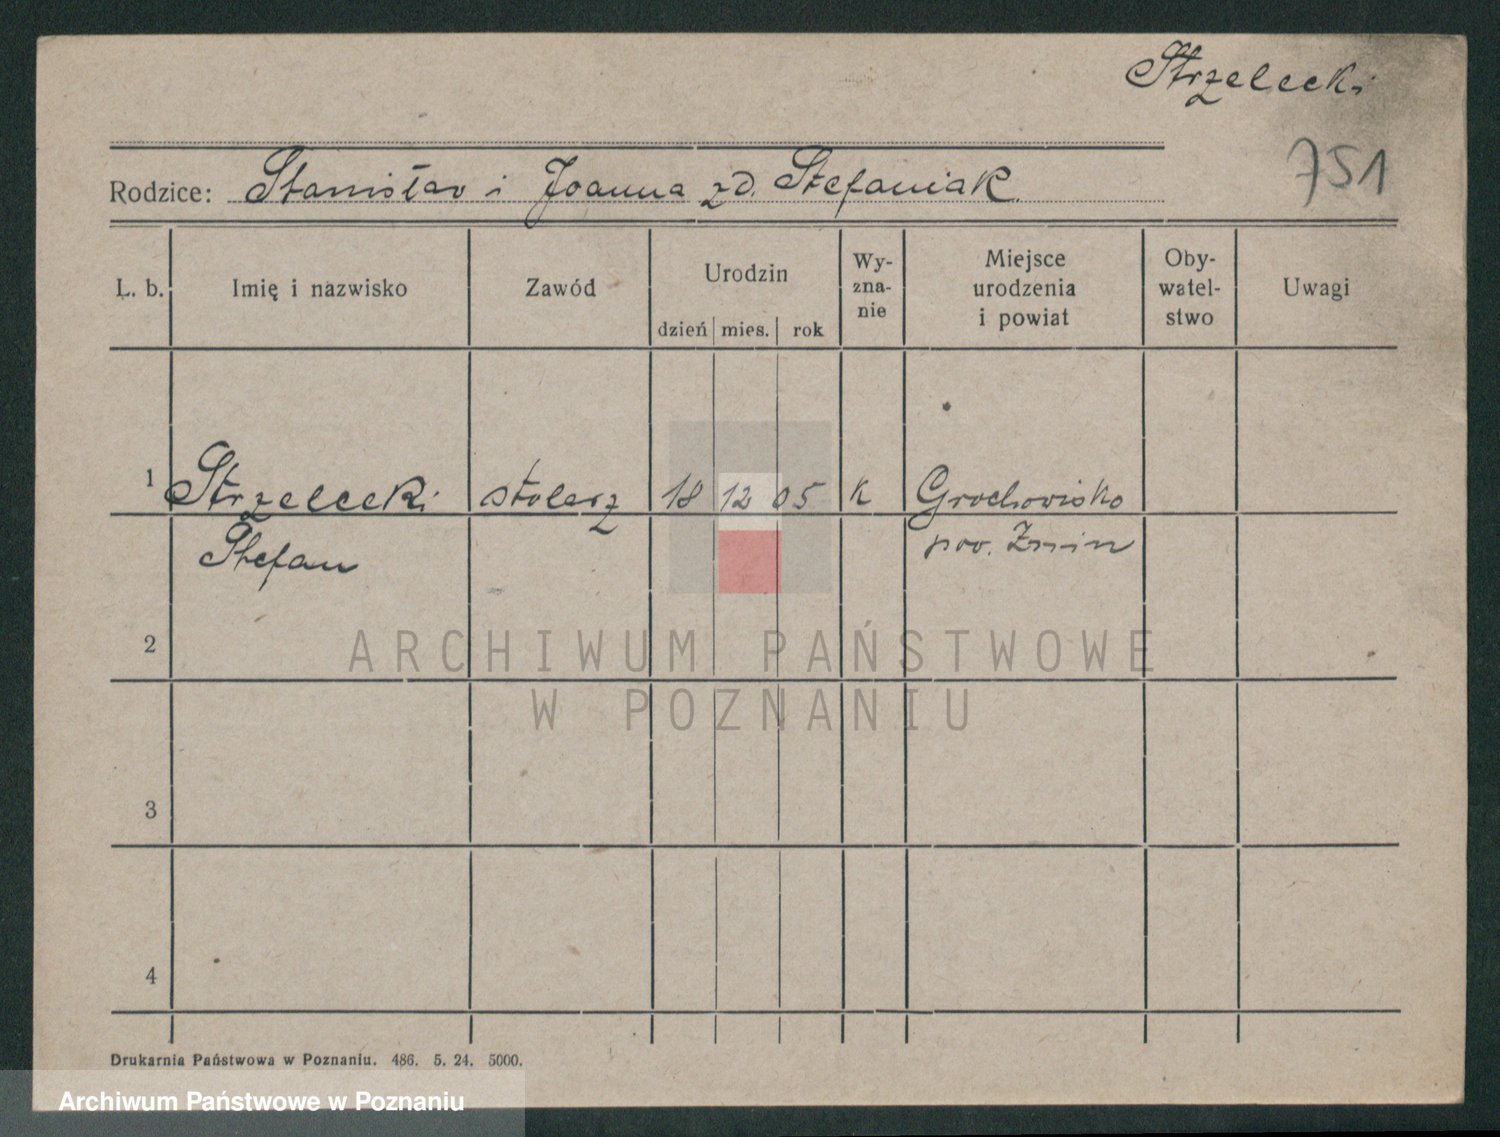 Strzelecki
751
Rodzice: Stanisław i Joanna zd. Stefaniak
L. b. Imię i nazwisko Zawód Urodzin dzień mies. rok Wy-zna-nie Miejsce urodzenia i powiat Oby-watel-stwo Uwagi
1 Strzelecki stolarz 18 12 05 K Grochowisko
Stefan pow. Żnin
2
3
4
ARCHIWUM PAŃSTWOWE
W POZNANIU
Drukarnia Państwowa w Poznaniu. 486. 5. 24. 5000.
Archiwum Państwowe w Poznaniu